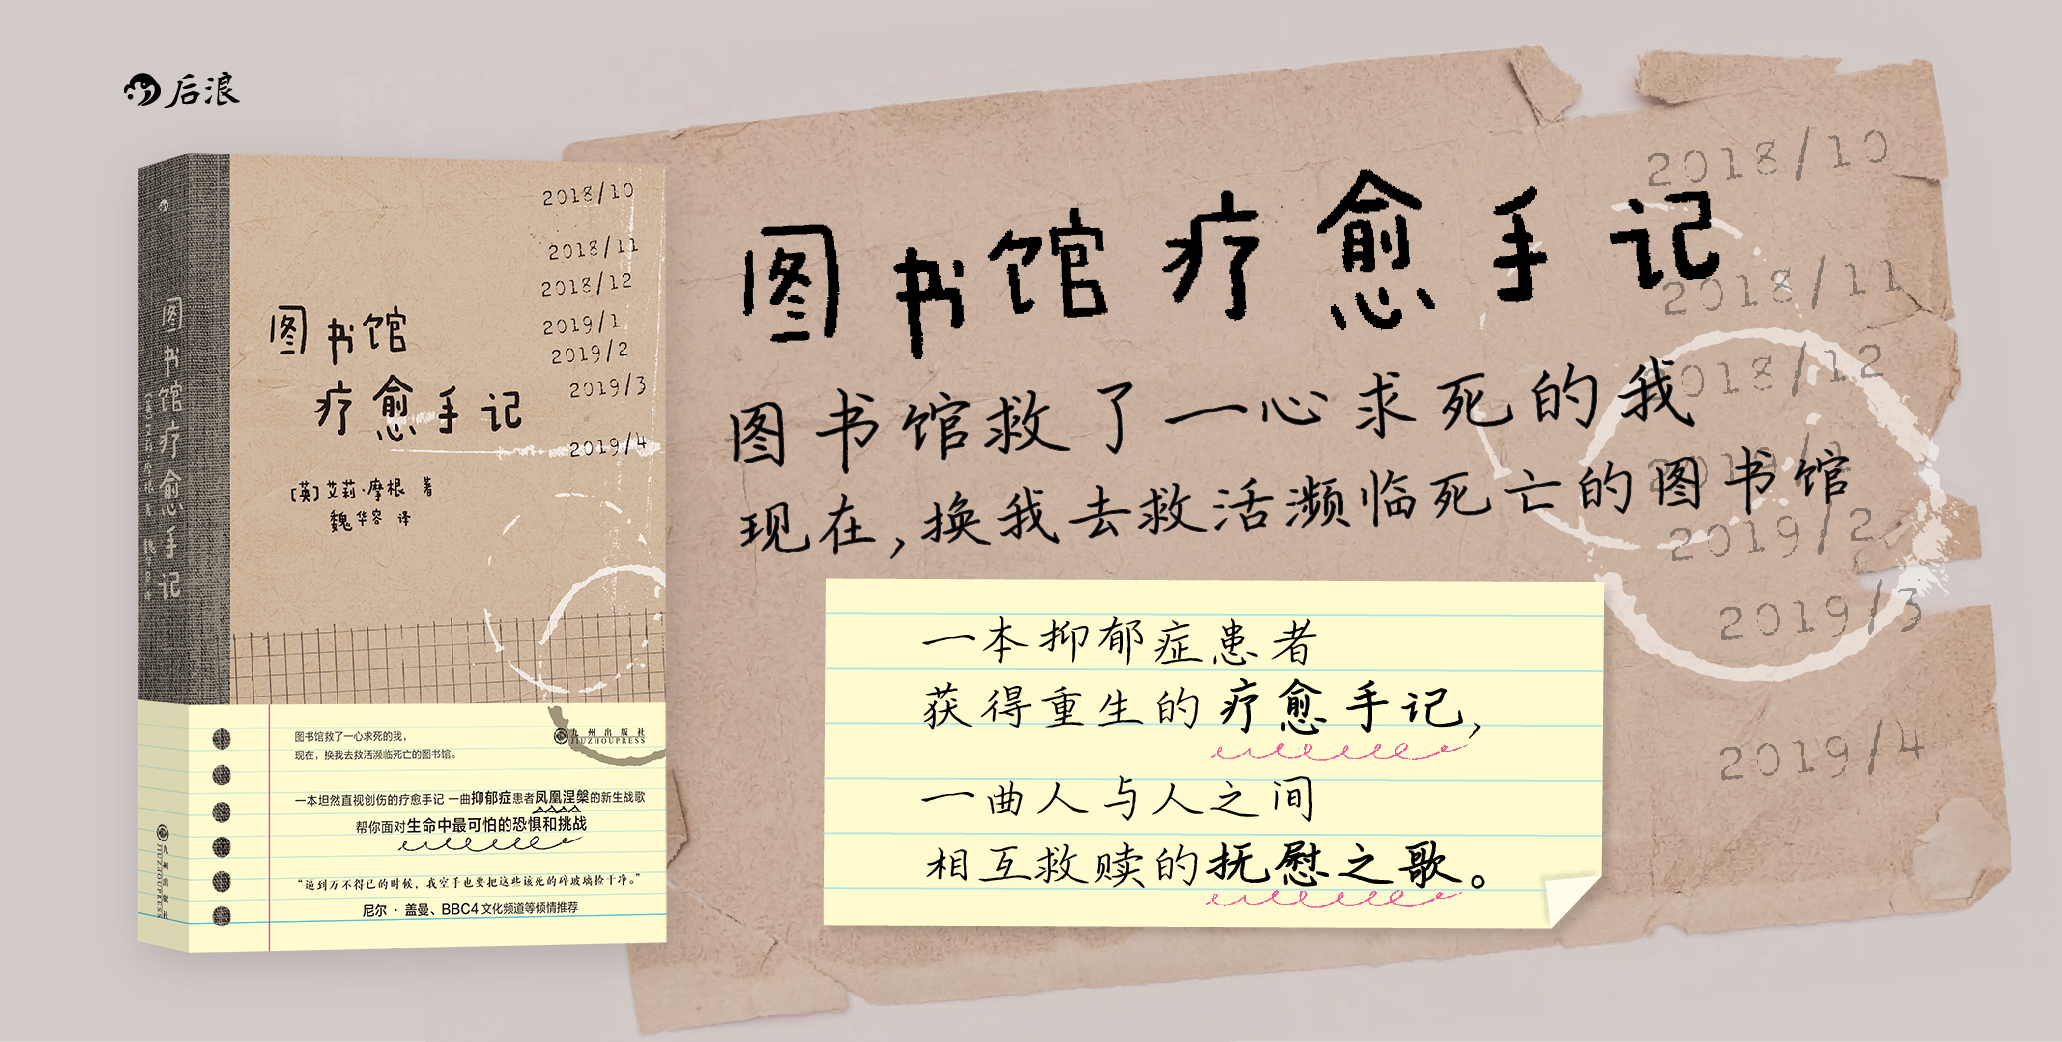 后浪
图书馆疗愈手记
图书馆救了一心求死的我
现在,换我去救活濒临死亡的图书馆
一本抑郁症患者
获得重生的疗愈手记,
一曲人与人之间
相互救赎的抚慰之歌。
2018/10
2018/11
2018/12
2019/2
2019/3
2019/4
图书馆疗愈手记
九州出版社
JIUZHOUPRESS
2018/10
2018/11
2018/12
2019/1
2019/2
2019/3
2019/4
图书馆
疗愈手记
[英]艾莉·摩根 著
魏华容 译
图书馆救了一心求死的我,
现在，换我去救活濒临死亡的图书馆。
九州出版社
JIUZHOUPRESS
一本坦然直视创伤的疗愈手记 一曲抑郁症患者凤凰涅槃的新生战歌
帮你面对生命中最可怕的恐惧和挑战
“逼到万不得已的时候，我空手也要把这些该死的碎玻璃捡干净。”
尼尔·盖曼、BBC4文化频道等倾情推荐